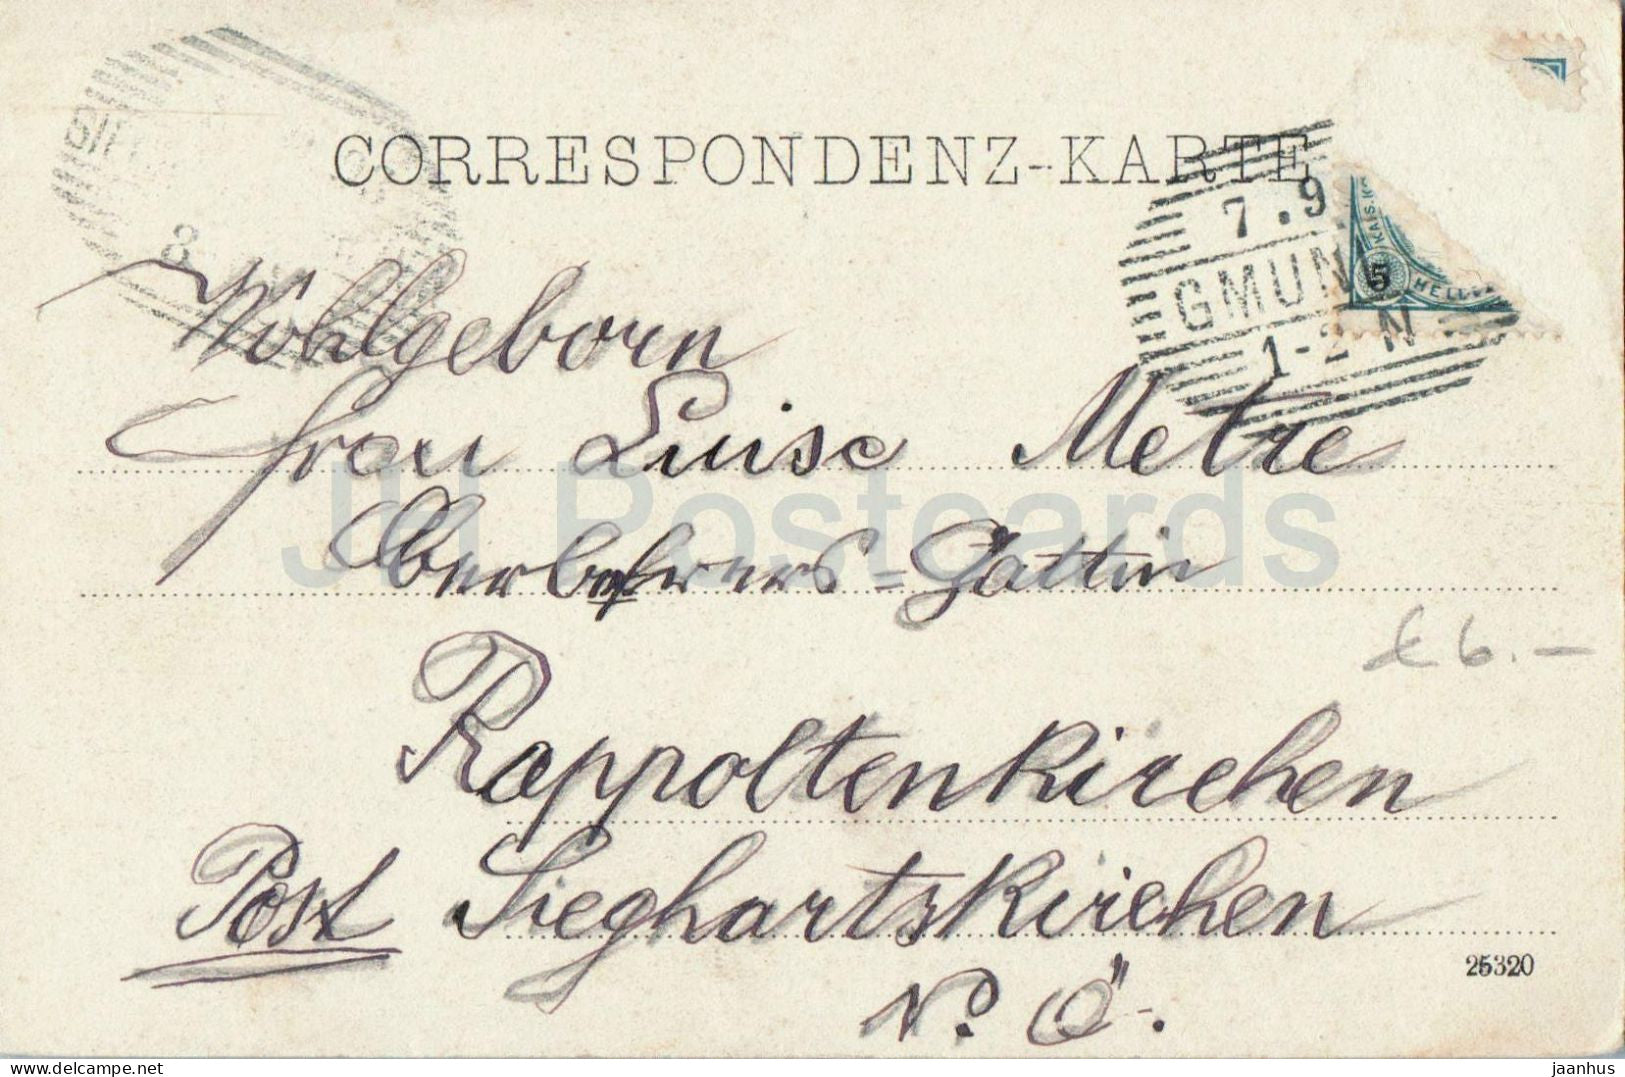 CORRESPONDENZ-KARTE
7.9
GMUN
1-2 N
KAIS.KÖ
5
HELLER
8
Wohlgeborn
Frau Luise Metre
Oberlehrers=Gattin
Rappoltenkirchen
Post Sieghartskirchen
N. Ö.
€ 6.-
25320
JH Postcards
delcampe.net
jaanhus